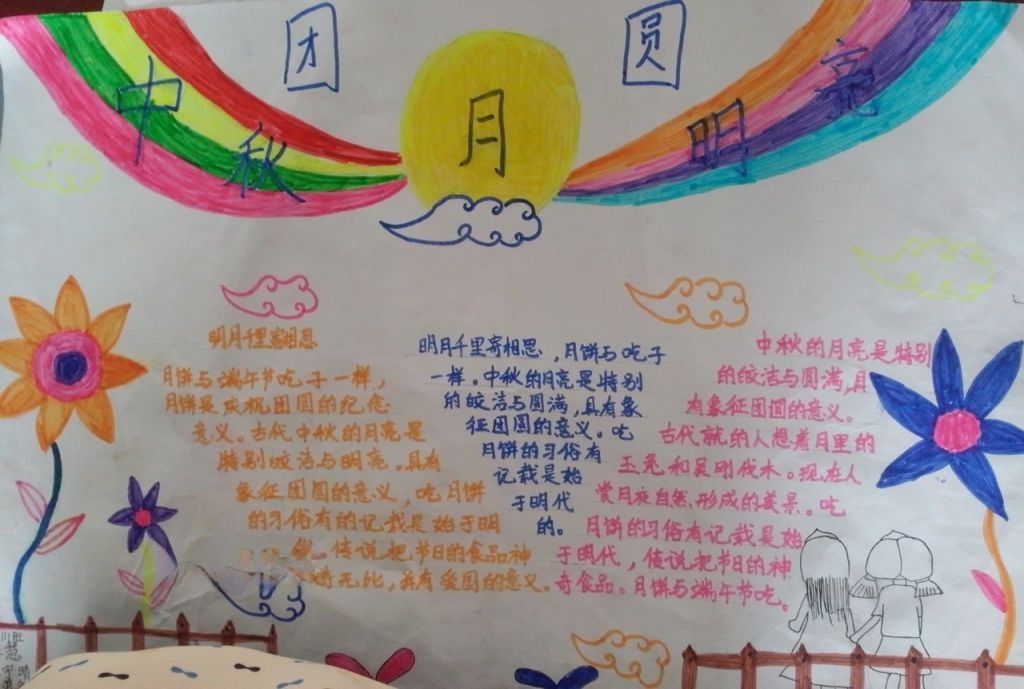 团 圆
中秋 月 明亮
明月千里寄相思
月饼与端午节吃子一样，
月饼是庆祝团圆的纪念
意义。古代中秋的月亮是
特别皎洁与明亮。具有
象征团圆的意义，吃月饼
的习俗有的记栽是始于明
传说把节日的食品神
奇无比，具有爱国的意义。
明月千里寄相思，月饼与吃子
一样。中秋的月亮是特别
的皎洁与圆满，具有象
征团圆的意义。吃
月饼的习俗有
记栽是始
于明代
的。
中秋的月亮是特别
的皎洁与圆满，具
有象征团圆的意义。
古代就的人想着月里的
玉兔和吴刚伐木。现在人
赏月夜自然，形成的美景。吃
月饼的习俗有记载是始
于明代，传说把节日的神
奇食品。月饼与端午节吃。